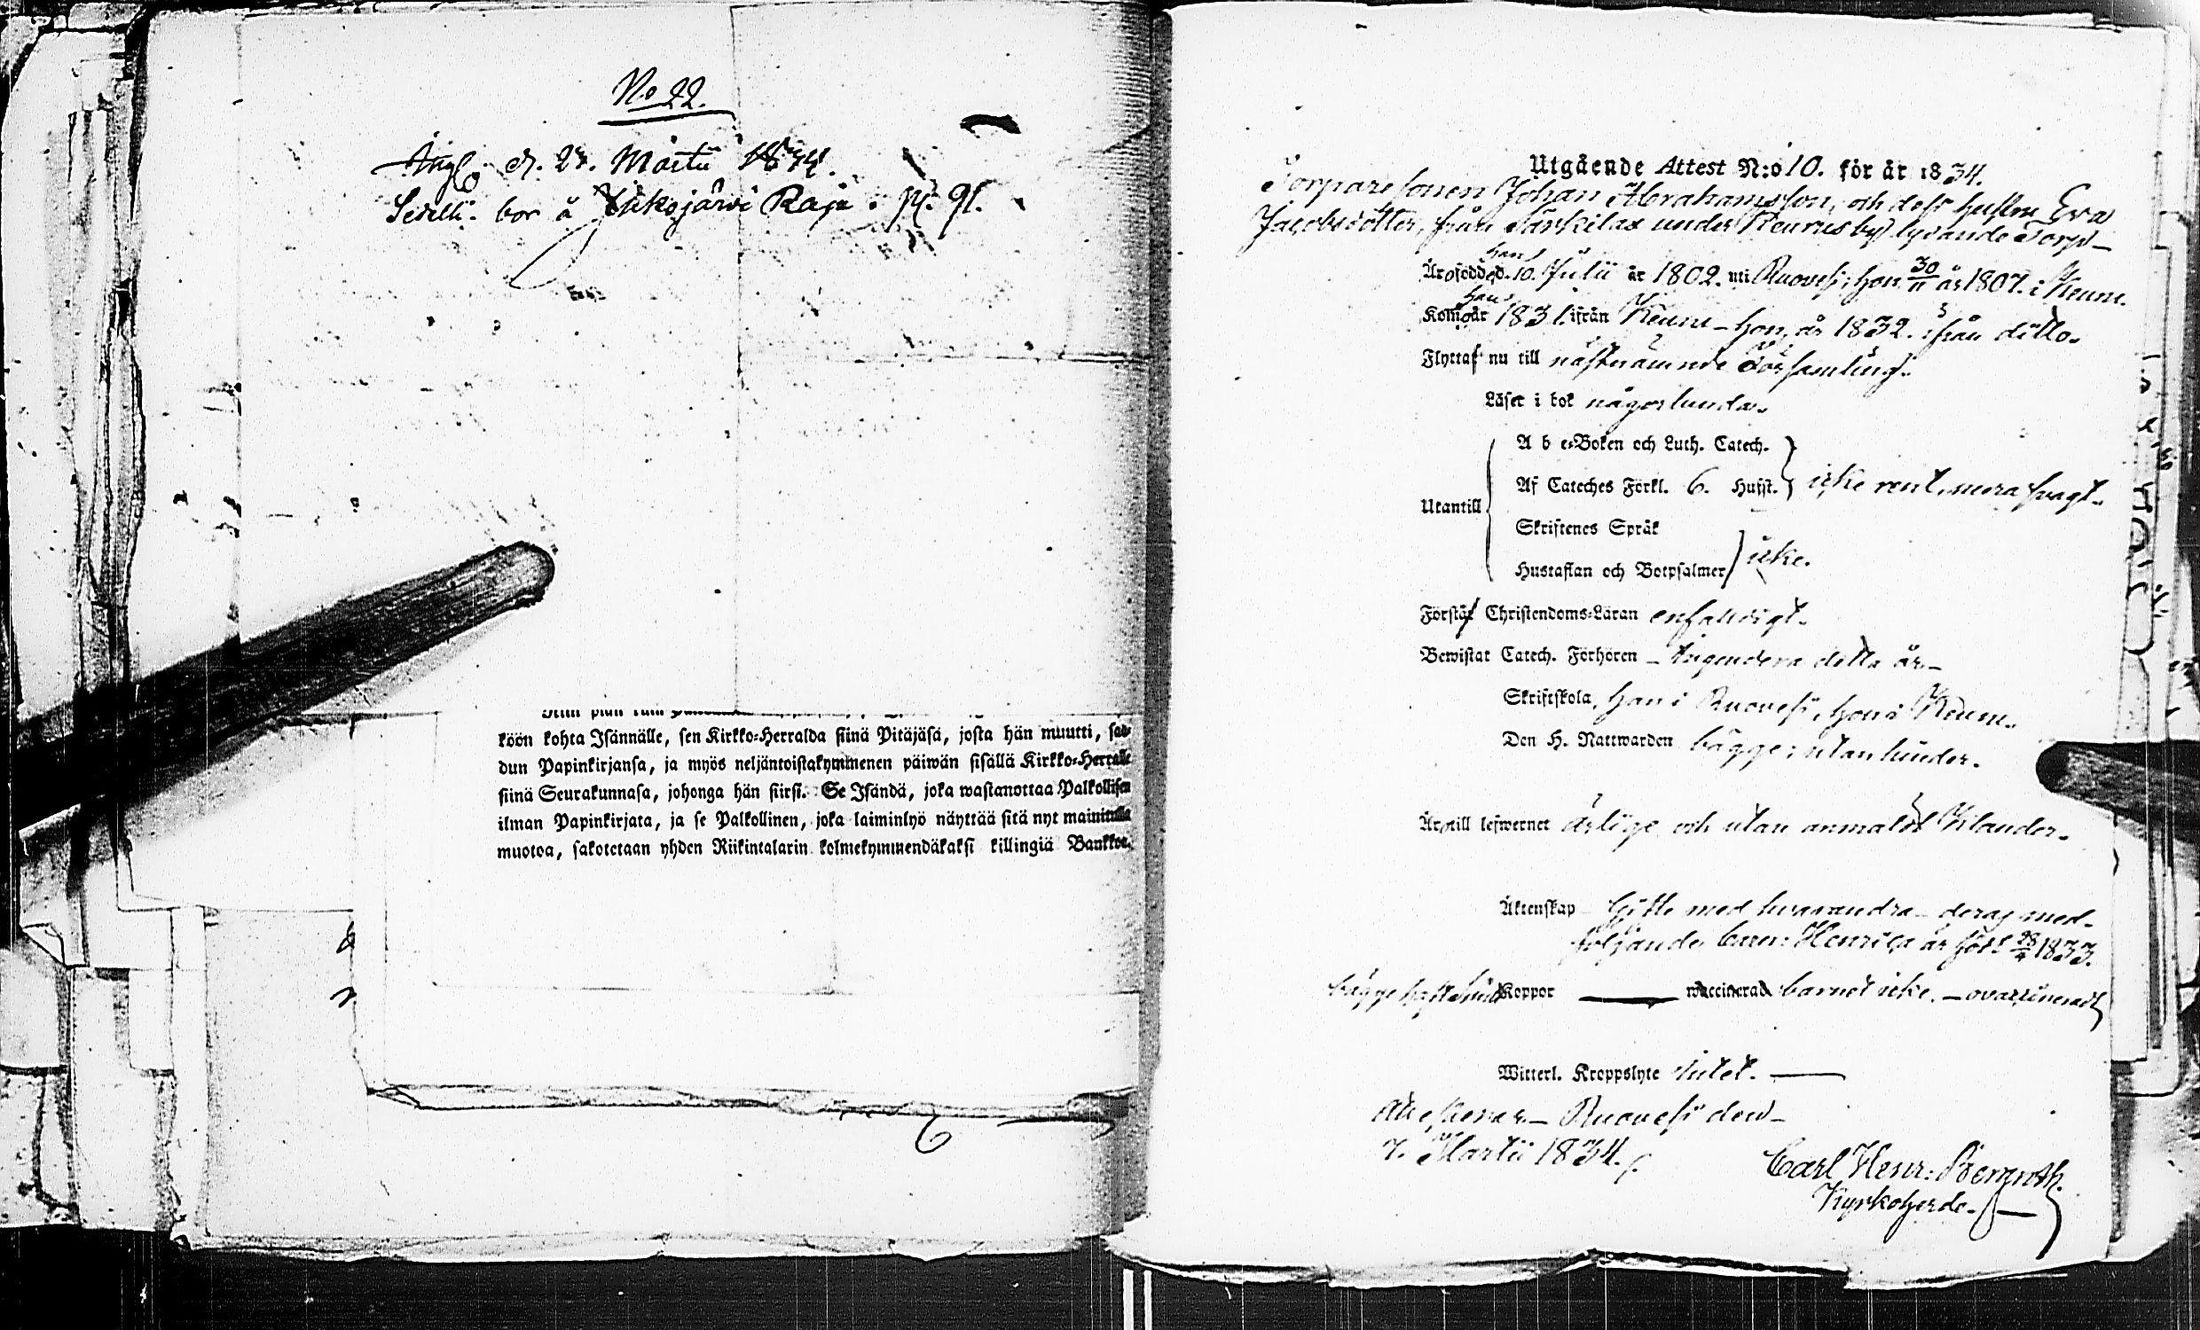 No 22.
d. 27. Martii 1834.
bor å Liukojärvi Raja. N. 91.
köön kohta Isännälle, sen Kirkko-Herralda siinä Pitäjäsä, josta hän muutti, saa-
dun Papinkirjansa, ja myös neljäntoistakymmenen päiwän sisällä Kirkko-Herralle
siinä Seurakunnasa, johonga hän siirsi. Se Isändä, joka wastanottaa Palkollisen
ilman Papinkirjata, ja se Palkollinen, joka laiminlyö näyttää sitä nyt mainitulla
muotoa, sakotetaan yhden Riikintalarin kolmekymmendäkaksi killingiä Bankkot.
Utgående Attest N:o 10. för år 1834.
Torpare sonen Johan Abrahamsson, och dess hustru Eva
Jacobsdotter, från Särkilax under Keurus by lydande Torp-
Äro födde han d. 10. Julii år 1802. uti Ruovesi, hon 30/11 år 1807. i Keuru.
Kom han år 1831. ifrån Keuru - hon, år 1832. ifrån ditto.
Flyttas nu till nästnämnde Församling.
Läser i bok någorlunda.
A b c-Boken och Luth. Catech.
Af Cateches Förkl. 6. Hufst. icke rent, mera svagt.
Utantill
Skriftenes Språk
Hustaflan och Botpsalmer icke.
Förstår Christendoms-Läran enfaldigt.
Bewistat Catech. Förhören - ingendera detta år -
Skriftskola, han i Ruovesi, hon i Keuru.
Den H. Nattwarden bägge; utan hinder.
Äro till lefwernet ärlige och utan anmäldt Klander.
Äktenskap Gifte med hvarandra - deras med-
följande barn: Henrica är född 28/4 1833.
bägge haft Koppor waccinerad barnet icke. - ovaccineradt
Witterl. Kroppslyte intet.
Attesterar - Ruovesi den -
7. Martii 1834.
Carl Henr: Bergroth.
Kyrkoherde.